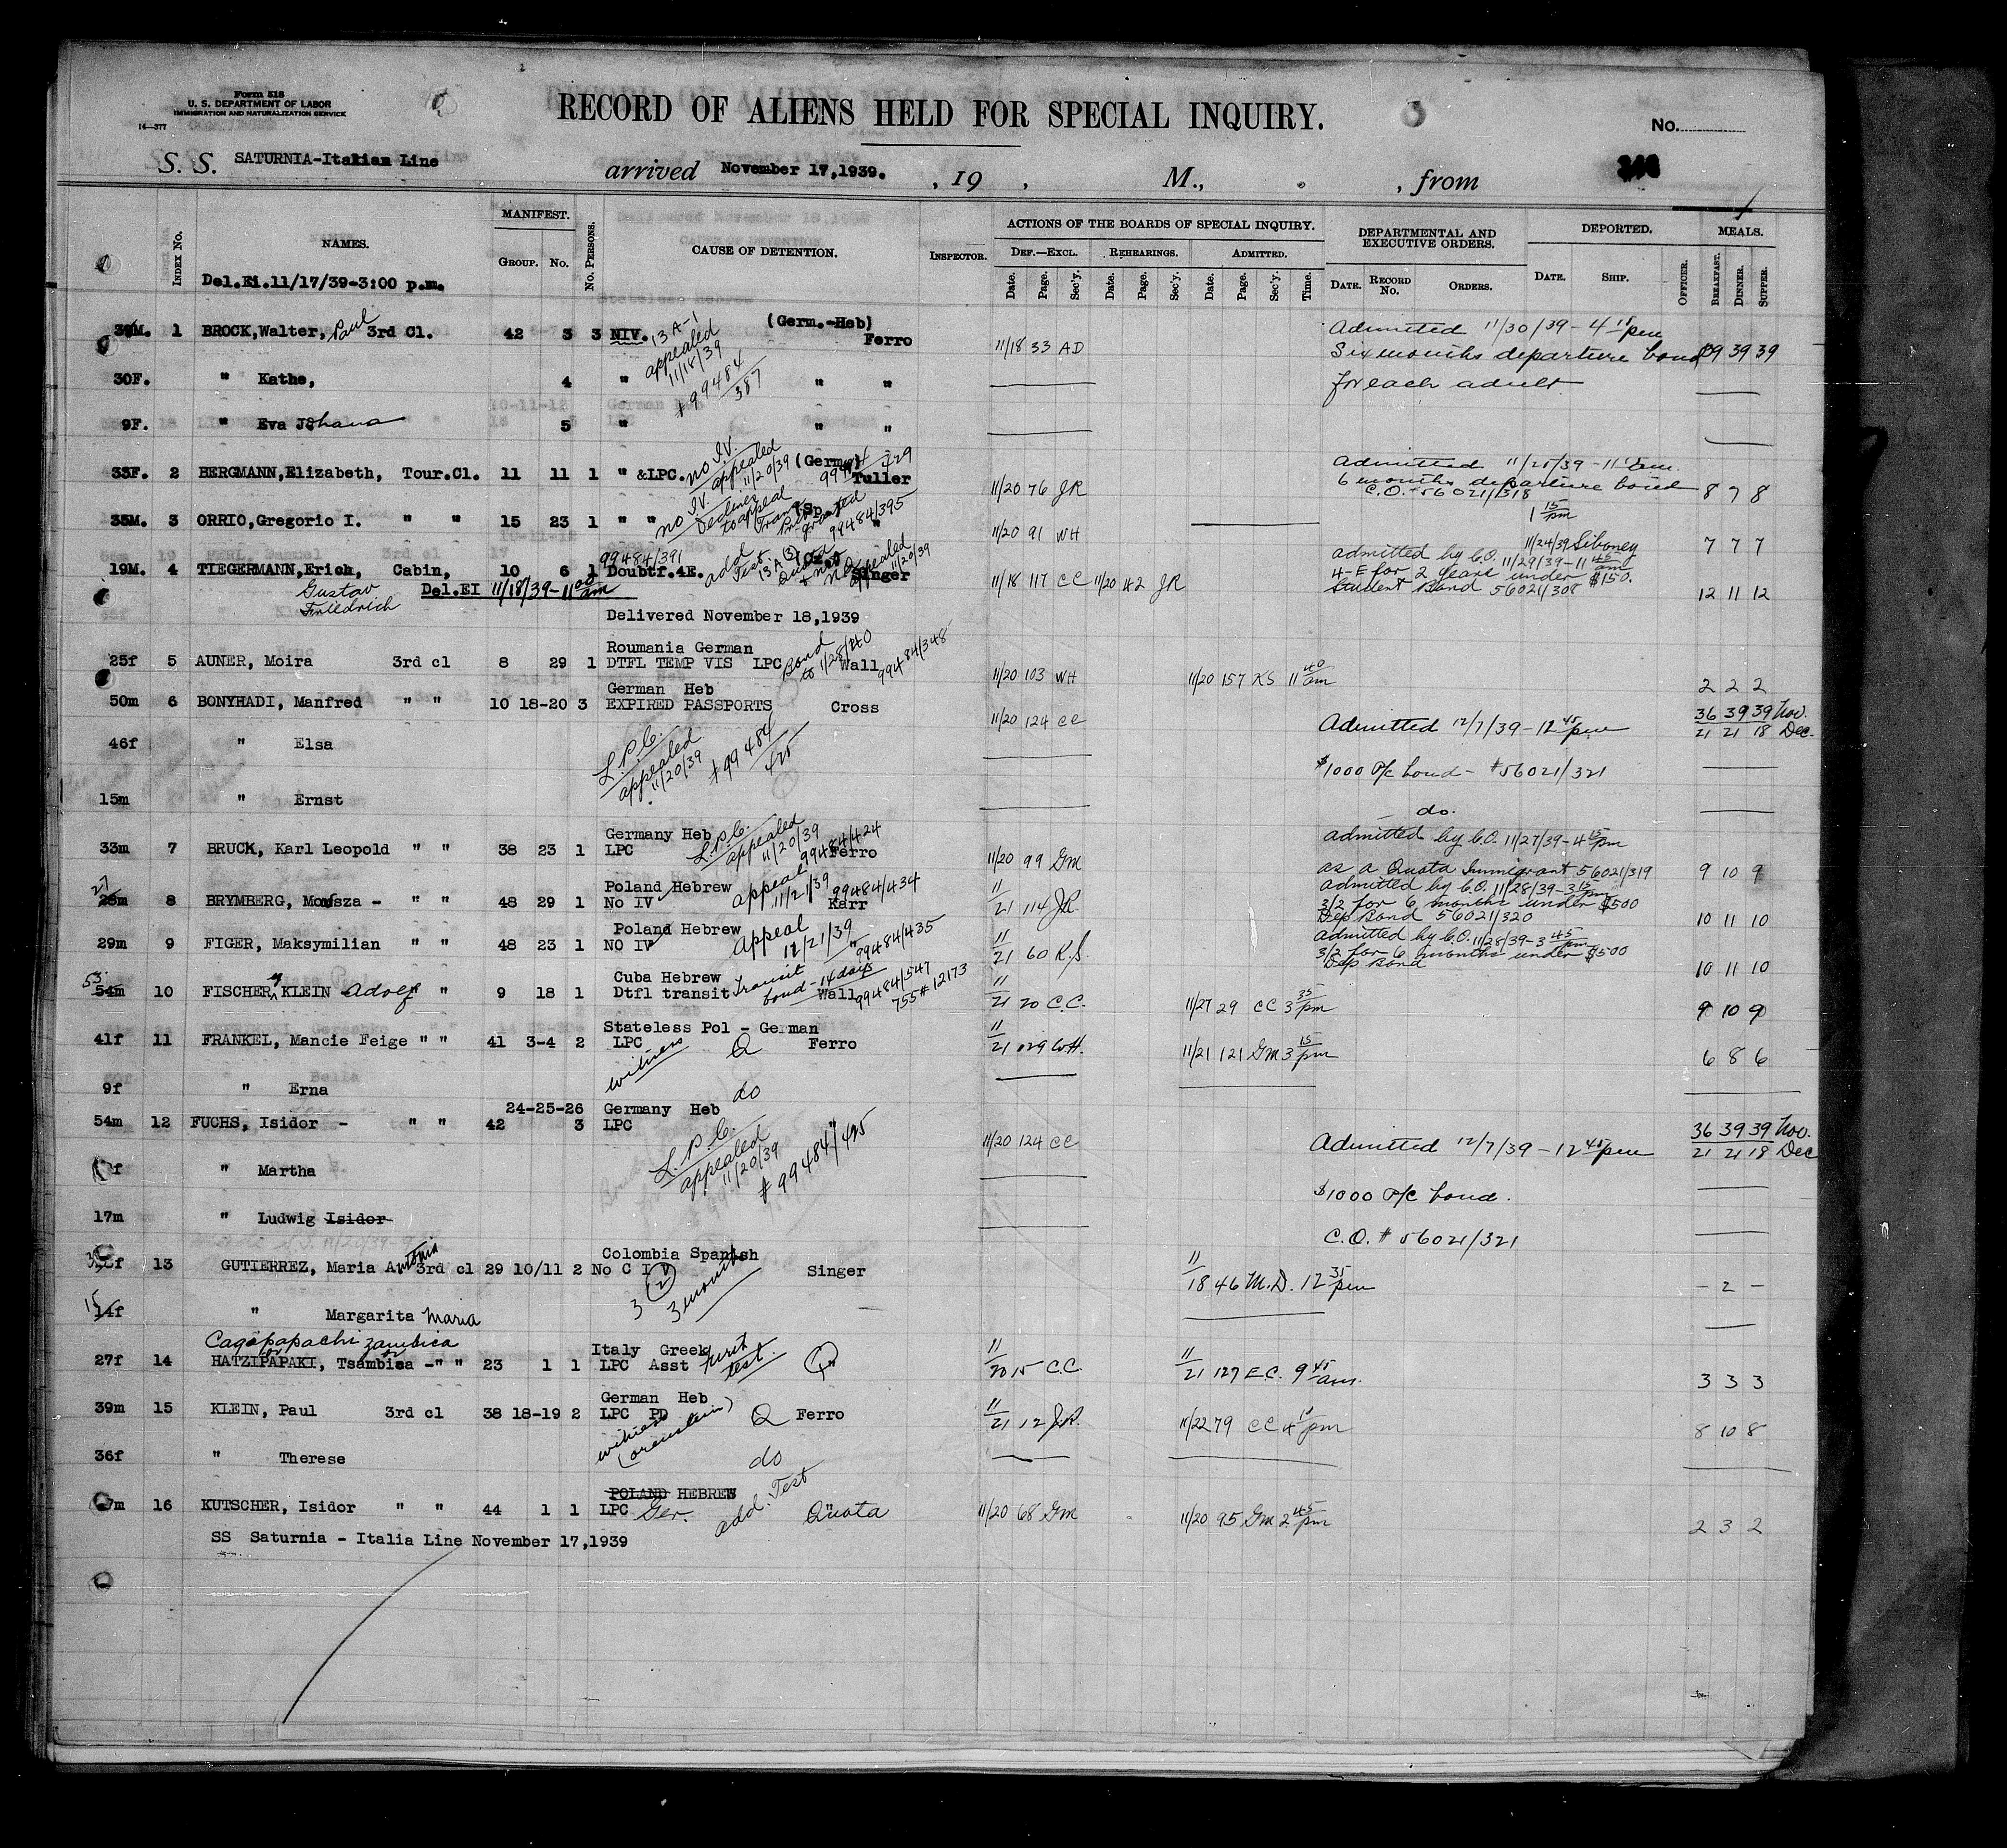 Form 518
U. S. DEPARTMENT OF LABOR
IMMIGRATION AND NATURALIZATION SERVICE
14—377
RECORD OF ALIENS HELD FOR SPECIAL INQUIRY.
No.
S. S. SATURNIA-Italian Line arrived November 17,1939. , 19 , M., , from
INDEX No. NAMES. MANIFEST. GROUP. No. No. PERSONS. CAUSE OF DETENTION. INSPECTOR. ACTIONS OF THE BOARDS OF SPECIAL INQUIRY. DEPARTMENTAL AND EXECUTIVE ORDERS. DEPORTED. MEALS.
DEF.—EXCL. REHEARINGS. ADMITTED.
Date. Page. Sec'y. Date. Page. Sec'y. Date. Page. Sec'y. Time. DATE. RECORD No. ORDERS. DATE. SHIP. OFFICER. BREAKFAST. DINNER. SUPPER.
Del.Ei.11/17/39-3:00 p.m.
1 BROCK,Walter, Paul 3rd Cl. 42 3 3 NIV. 13 A-1 (Germ.-Heb) Ferro 11/18 33 AD Admitted 11/30/39 - 4 15 pm 39 39 39
appealed 11/18/39 Six months departure bond
30F. " Kathe, 4 " #99484/387 " " for each adult
9F. " Eva Johana 5 " " "
33F. 2 BERGMANN,Elizabeth, Tour.Cl. 11 11 1 " &LPC. no I.V. appealed 11/20/39 (Germ) 99484/429 Tuller 11/20 76 JR Admitted 11/25/39 - 11 am. 8 7 8
6 months departure bond
C.O. - 56021/318
35M. 3 ORRIO,Gregorio I. " " 15 23 1 " " no I.V. Declines to appeal (Sp.) granted 99484/395 " 11/20 91 WH 1 15 pm 11/24/39 Siboney 7 7 7
19M. 4 TIEGERMANN,Erich, Cabin, 10 6 1 99484/391 Doubtf.4E. add Test. appealed 11/20/39 Singer 11/18 117 CC 11/20 42 JR admitted by C.O. 11/29/39 - 11 45 am 12 11 12
Gustav 4-E for 2 years under $150.
Friedrich Del.EI 11/18/39-11 00 am Student Bond 56021/308
Delivered November 18,1939
Roumania German
25f 5 AUNER, Moira 3rd cl 8 29 1 DTFL TEMP VIS LPC Bond to 1/28/40 Wall 99484/348 11/20 103 WH 11/20 157 KS 11 40 am 2 2 2
German Heb
50m 6 BONYHADI, Manfred " " 10 18-20 3 EXPIRED PASSPORTS Cross 11/20 124 CC Admitted 12/7/39 - 12 45 pm 36 39 39 Nov.
21 21 18 Dec.
46f " Elsa L.P.C. appealed 11/20/39 #99484/425 $1000 P/c bond - #56021/321
15m " Ernst do.
Germany Heb
33m 7 BRUCK, Karl Leopold " " 38 23 1 LPC L.P.C. appealed 11/20/39 99484/424 Ferro 11/20 99 GM admitted by C.O. 11/27/39 - 4 15 pm 9 10 9
as a Quota Immigrant 56021/319
Poland Hebrew
27 28m 8 BRYMBERG, Monsza - " " 48 29 1 No IV appeal 11/21/39 99484/434 Karr 11/21 114 JR. admitted by C.O. 11/28/39 - 3 15 pm 10 11 10
3/2 for 6 months under $500
Dep Bond 56021/320
Poland Hebrew
29m 9 FIGER, Maksymilian " " 48 23 1 NO IV appeal 11/21/39 " 99484/435 11/21 60 K.S. admitted by C.O. 11/28/39 - 3 45 pm 10 11 10
3/2 for 6 months under $500
Dep Bond
Cuba Hebrew
53 54m 10 FISCHER y KLEIN Adolf " " 9 18 1 Dtfl transit Transit bond - 14 days Wall 99484/547 755#12173 11/21 20 C.C. 11/27 29 CC 3 35 pm 9 10 9
Stateless Pol - German
41f 11 FRANKEL, Mancie Feige " " 41 3-4 2 LPC witness Q Ferro 11/21 129 WH. 11/21 121 GM 3 15 pm 6 8 6
9f " Erna do
24-25-26 Germany Heb
54m 12 FUCHS, Isidor - " " 42 3 LPC " 11/20 124 CC Admitted 12/7/39 - 12 45 pm 36 39 39 Nov.
21 21 18 Dec
f " Martha L.P.C. appealed 11/20/39 #99484/425 $1000 P/c bond.
17m " Ludwig Isidor C.O. # 56021/321
Colombia Spanish
13 GUTIERREZ, Maria Antonia 3rd cl 29 10/11 2 No C I V 3 (2) 3 months Singer 11/18 46 M.D. 12 35 pm - 2 -
15 14f " Margarita Maria
Cagapapachi Zambica
Italy Greek
27f 14 HATZIPAPAKI, Tsambica - " " 23 1 1 LPC Asst writ test. Q 11/20 15 C.C. 11/21 127 E.C. 9 45 am. 3 3 3
German Heb
39m 15 KLEIN, Paul 3rd cl 38 18-19 2 LPC PD witness (Orenstein) Q Ferro 11/21 12 JR. 11/22 79 CC 4 10 pm 8 10 8
36f " Therese do
POLAND HEBREW
7m 16 KUTSCHER, Isidor " " 44 1 1 LPC Ger. add. Test Quota 11/20 68 GM 11/20 95 GM 2 45 pm 2 3 2
SS Saturnia - Italia Line November 17,1939